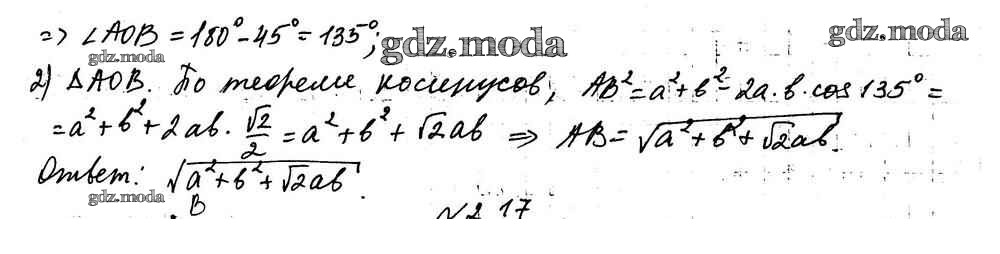 => ∠AOB = 180° - 45° = 135°; gdz.moda gdz.moda
gdz.moda
2) ΔAOB. По теореме косинусов, AB² = a² + b² - 2a·b·cos 135° =
= a² + b² + 2ab · √2/2 = a² + b² + √2ab => AB = √(a² + b² + √2ab).
Ответ: √(a² + b² + √2ab).
gdz.moda
B
№ 2.17